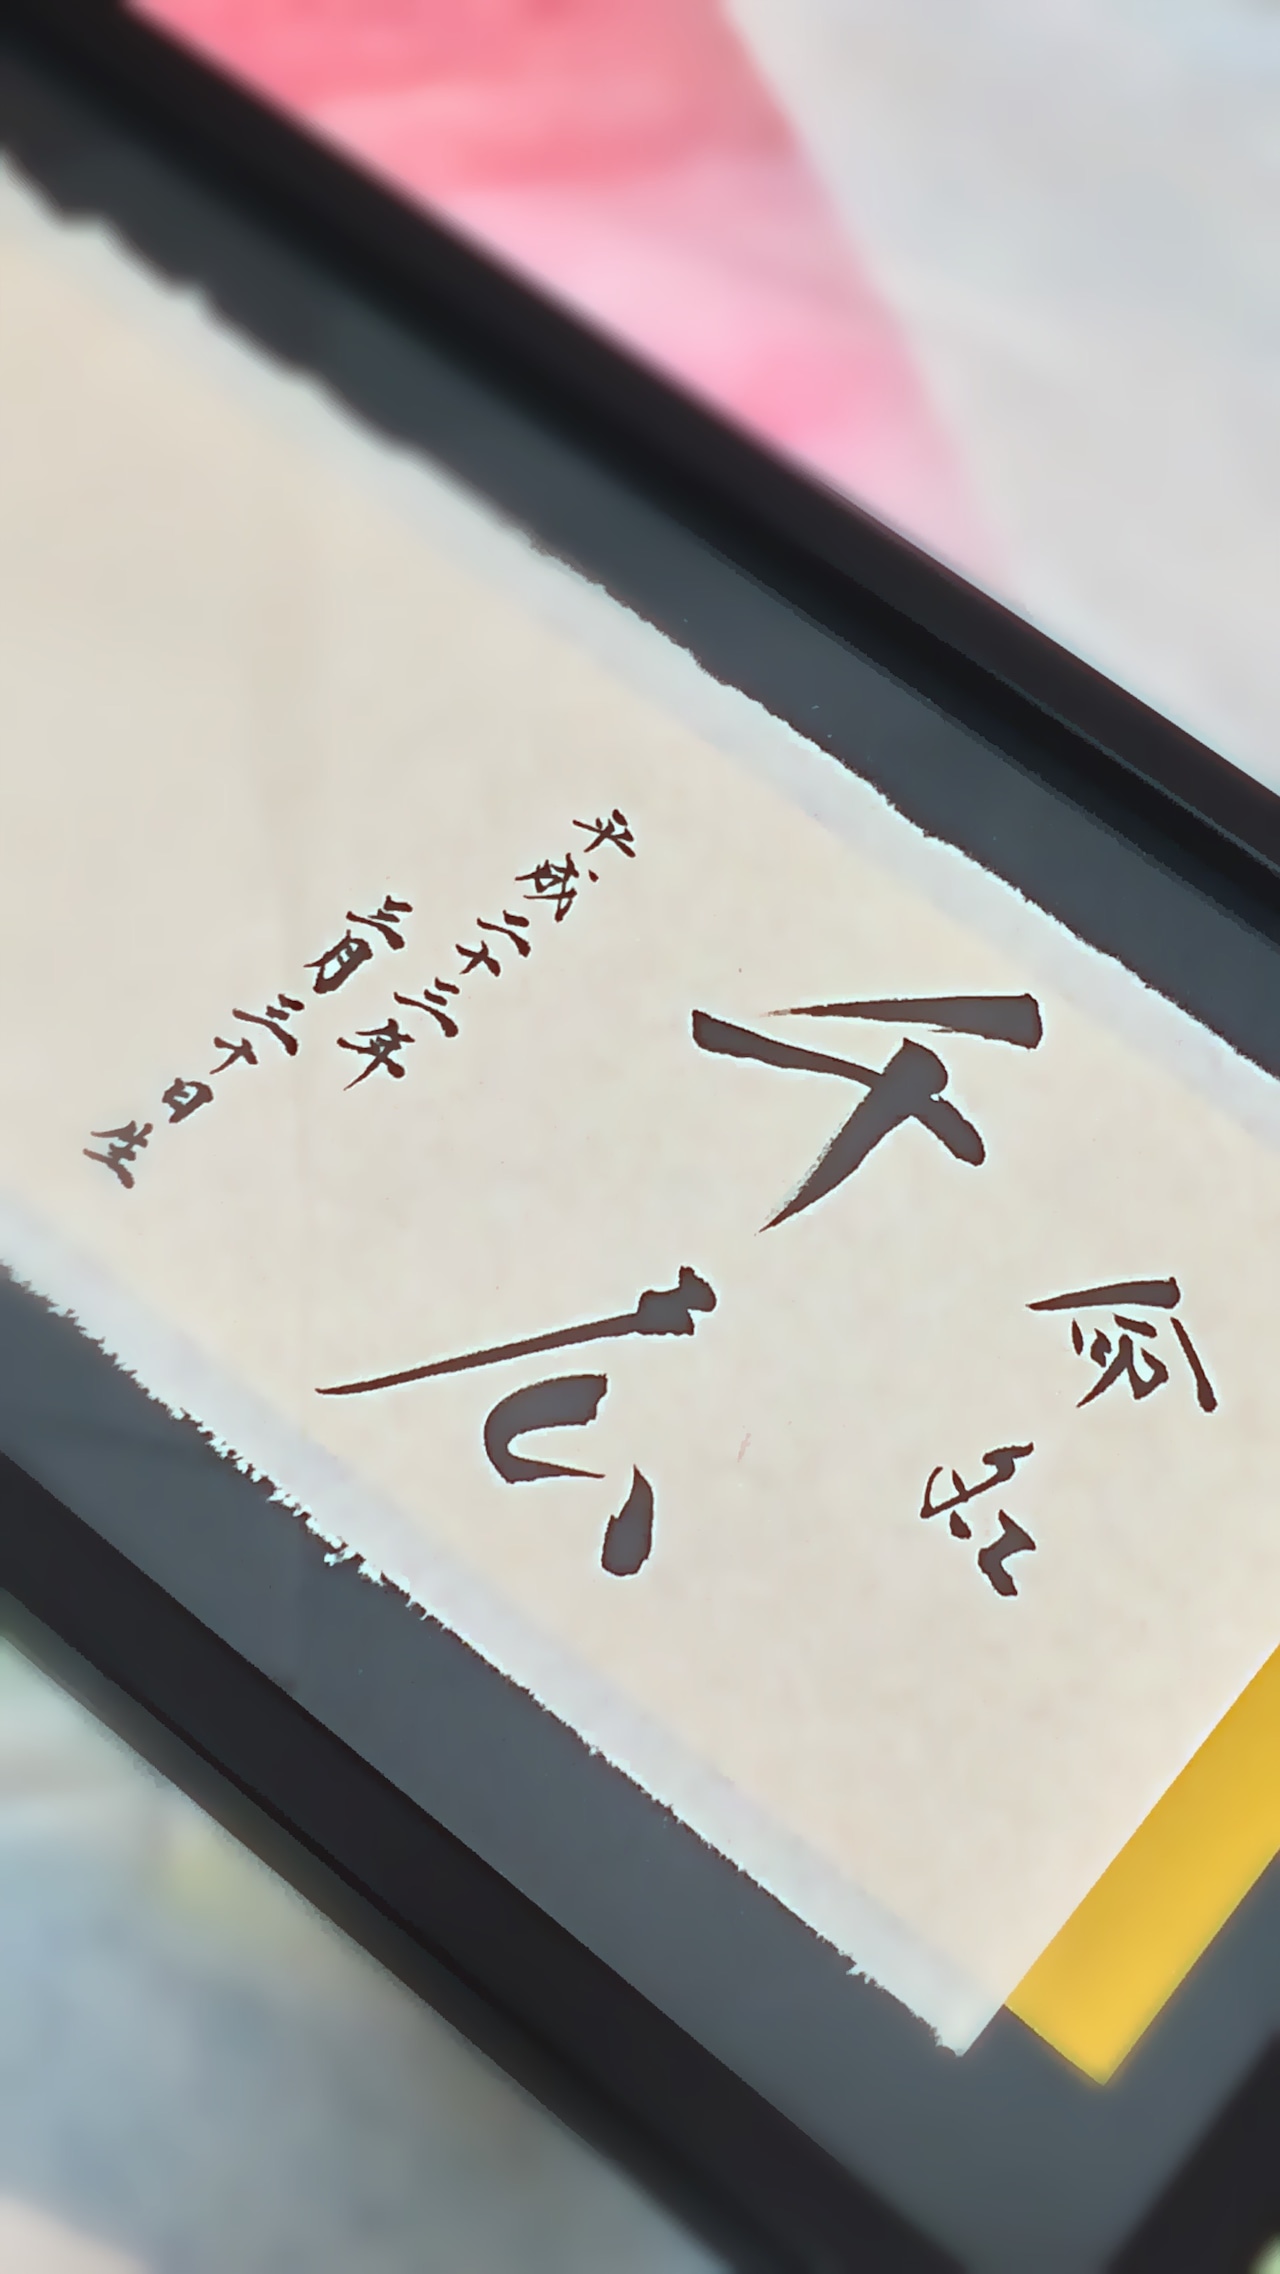 命名
千
平成二十三年
三月三十日生